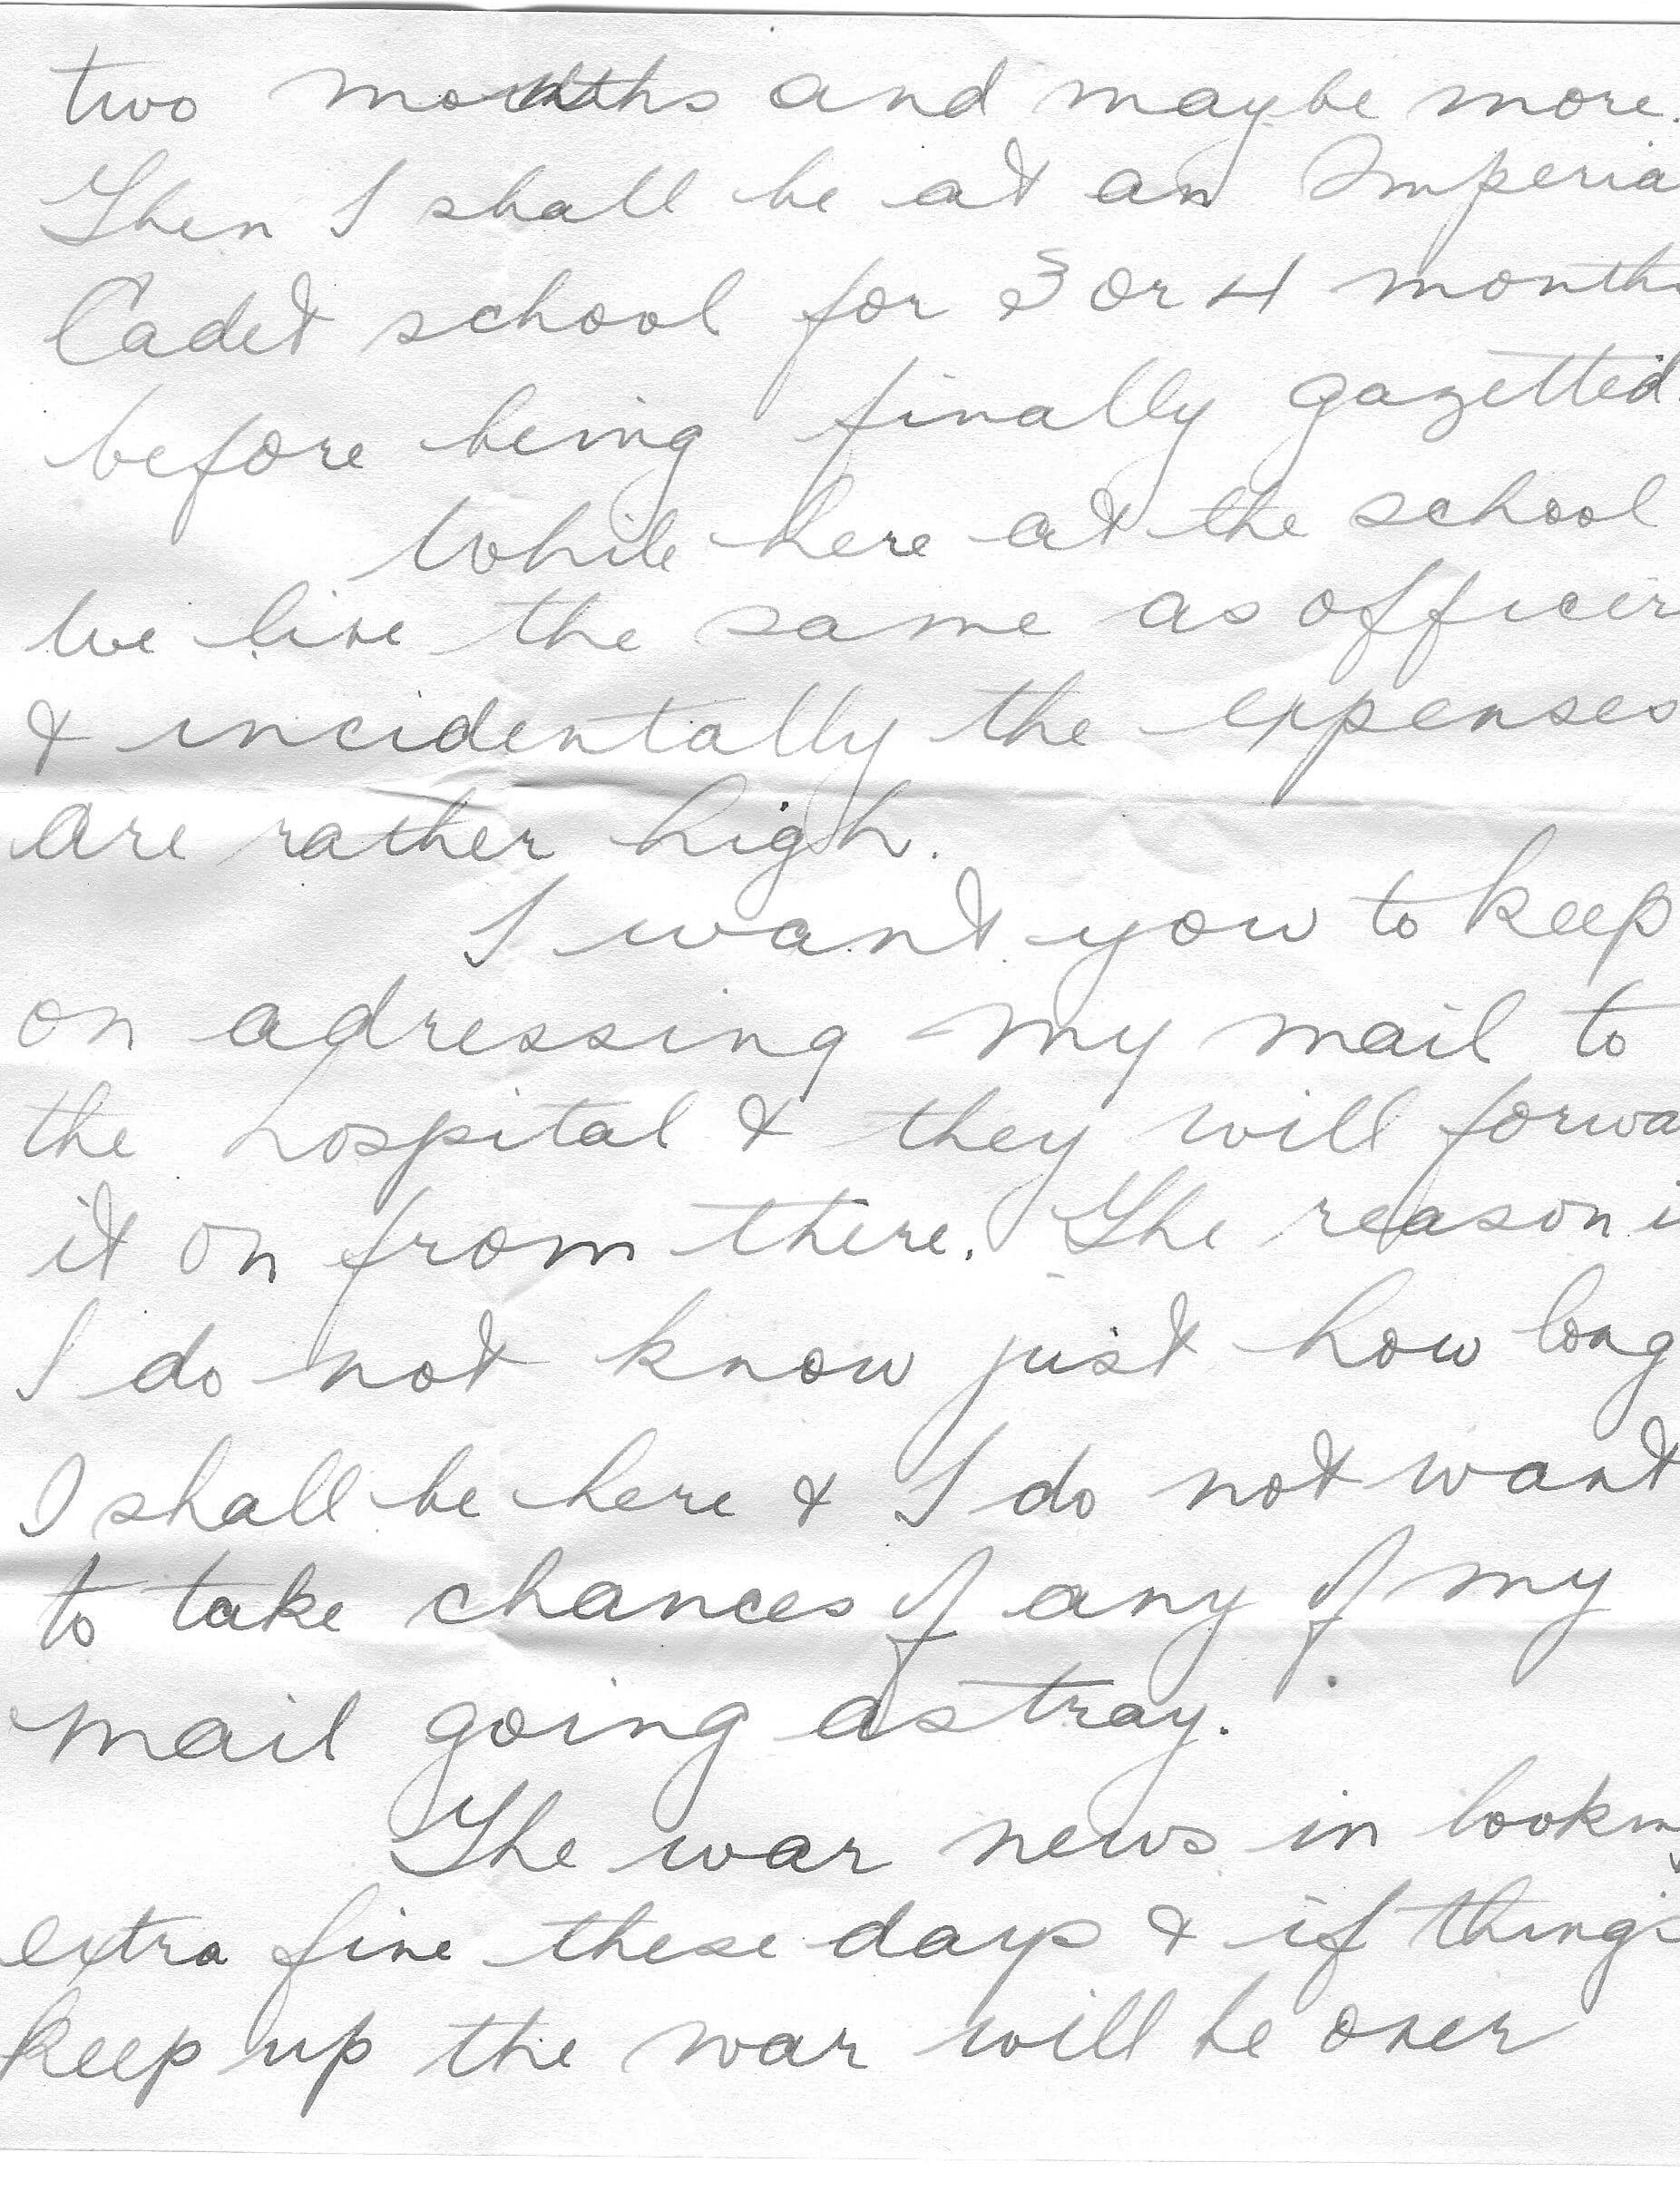 two months and maybe more.
Then I shall be at an Imperia
Cadet school for 3 or 4 months
before being finally gazetted.
While here at the school
we live the same as officer
& incidentally the expenses
are rather high.
I want you to keep
on adressing my mail to
the hospital & they will forwa
it on from there. The reason i
I do not know just how long
I shall be here & I do not want
to take chances of any of my
mail going astray.
The war news in lookin
extra fine these days & if things
keep up the war will be over